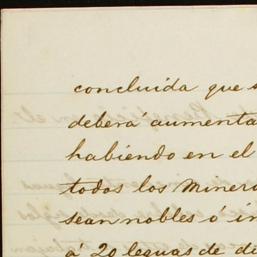 concluida que s
deberá aumenta
habiendo en el
todos los Minera
sean nobles ó in
á 20 leguas de di